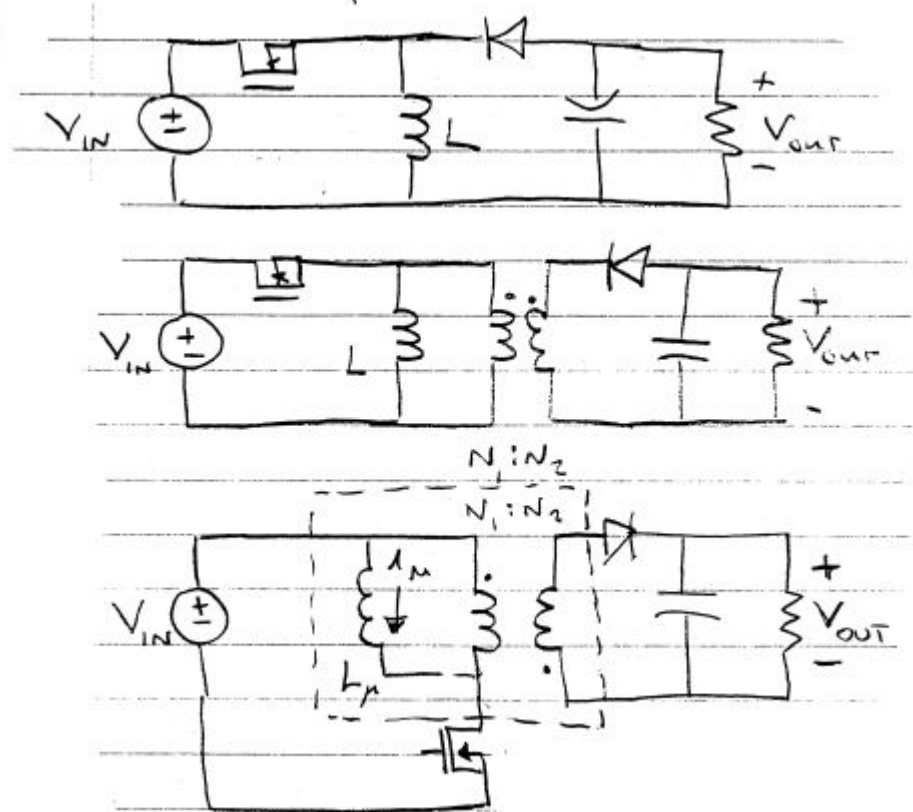 V_IN L + V_out -
V_IN L + V_out -
N_1 : N_2
N_1 : N_2
V_IN i_μ L_μ + V_OUT -